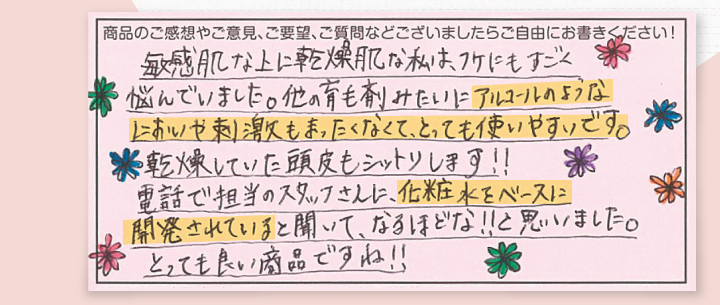 商品のご感想やご意見、ご要望、ご質問などございましたらご自由にお書きください!
敏感肌な上に乾燥肌な私は、フケにもすごく
悩んでいました。他の育毛剤みたいにアルコールのような
においや刺激もまったくなくて、とっても使いやすいです。
乾燥していた頭皮もシットリします!!
電話で担当のスタッフさんに、化粧水をベースに
開発されていると聞いて、なるほどな!!と思いました。
とっても良い商品ですね!!